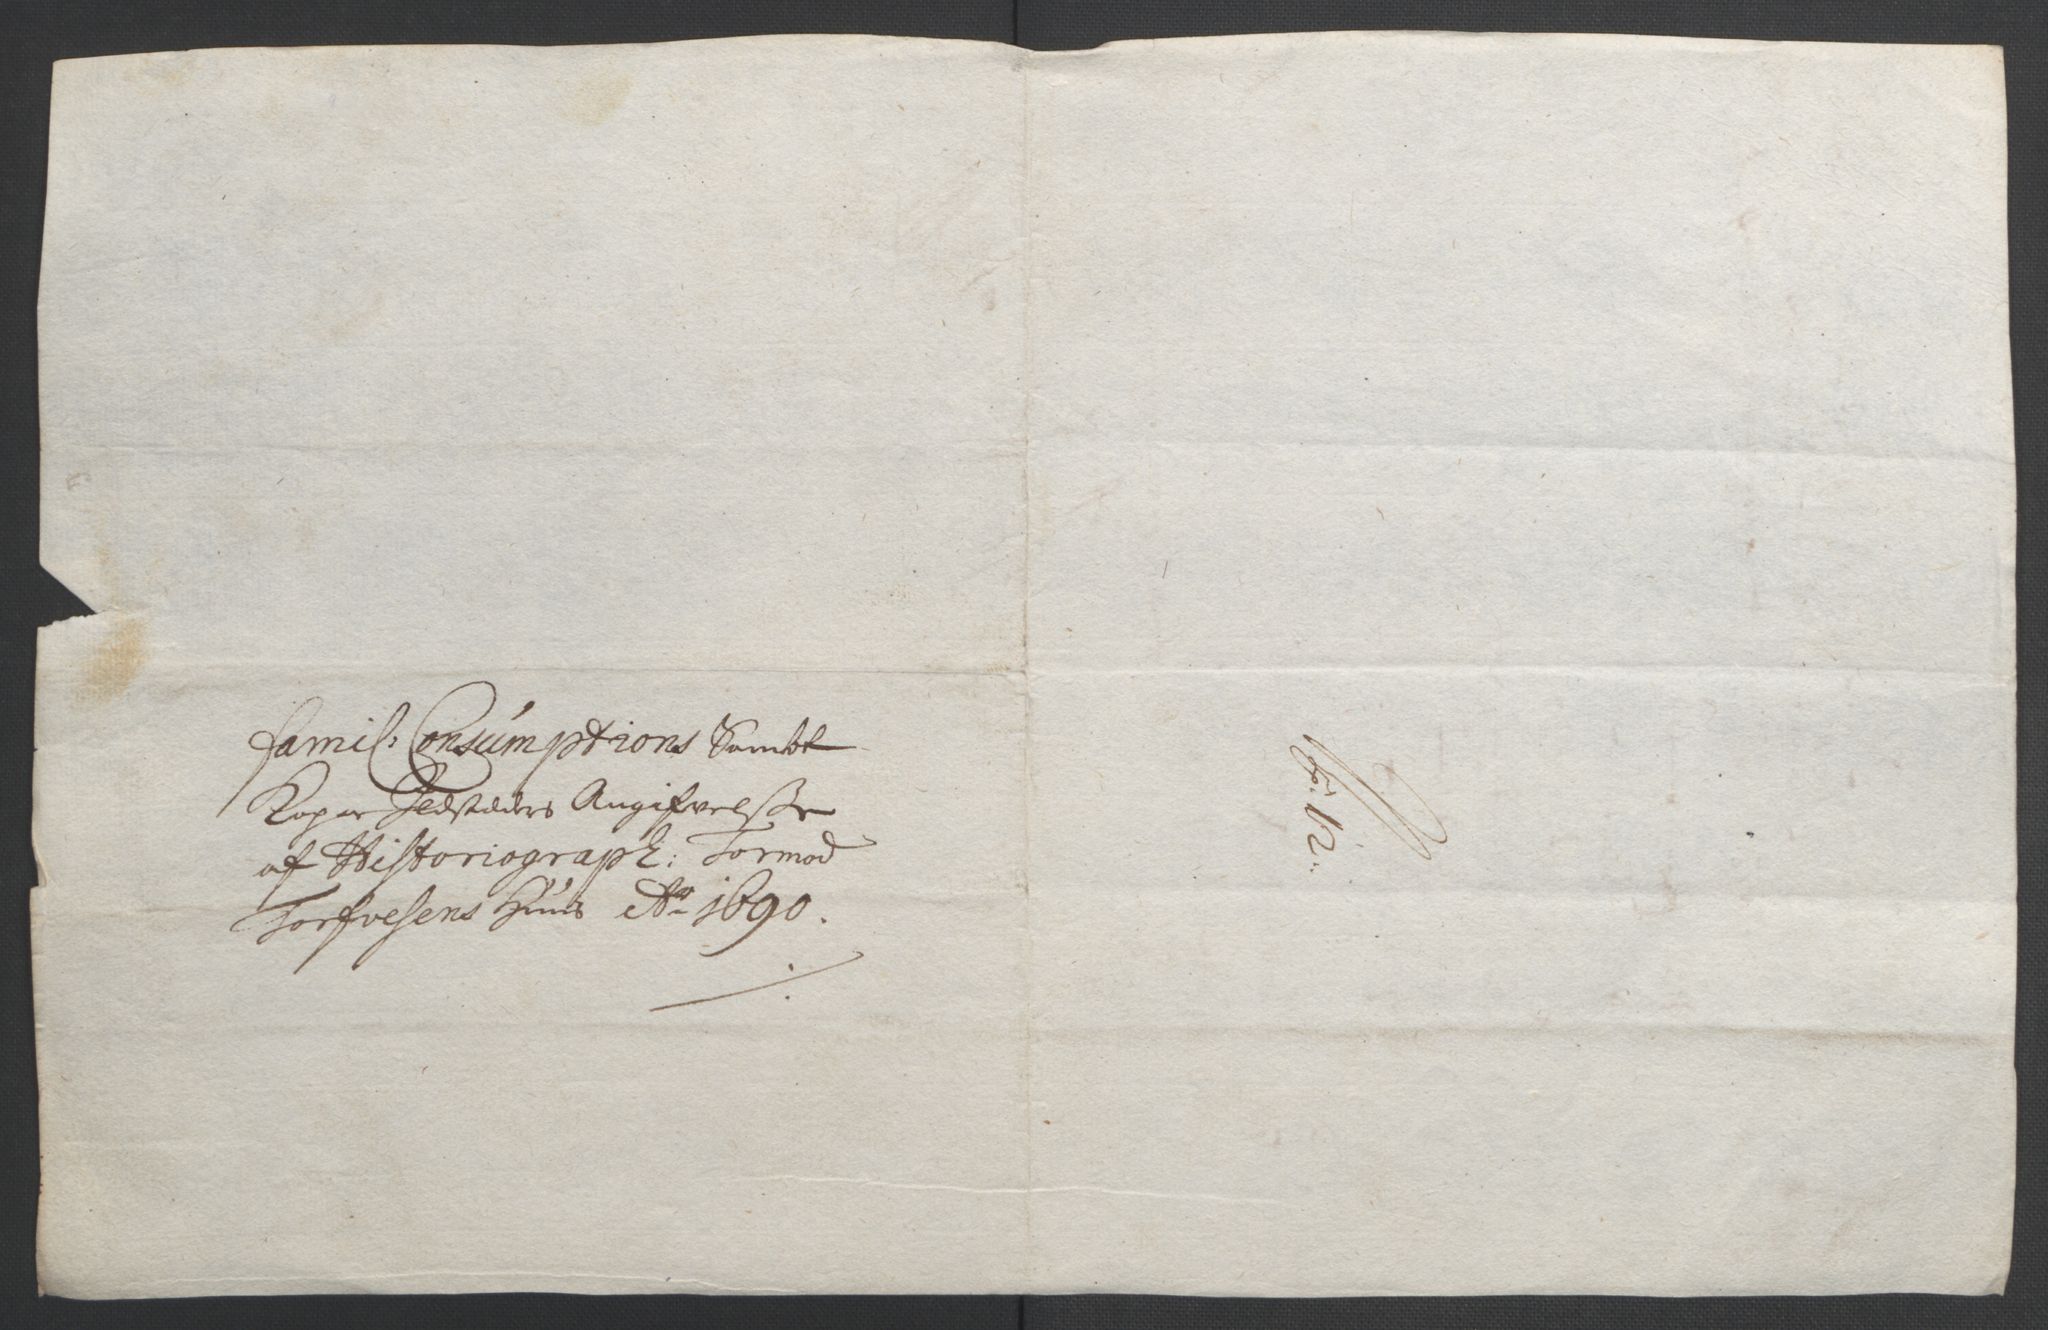 famil: Consumptions Sambt
Kopar Ildstæders Angifvelsse
af Historiograph: Tormod
Torfvesens Huus Ao 1690.
No. 12.